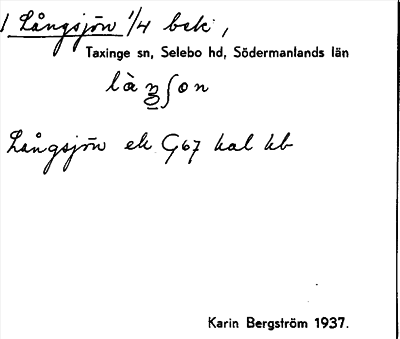 1 Långsjön 1/4 bek,
Taxinge sn, Selebo hd, Södermanlands län
Långsjön ek G67 kal kb
Karin Bergström 1937.